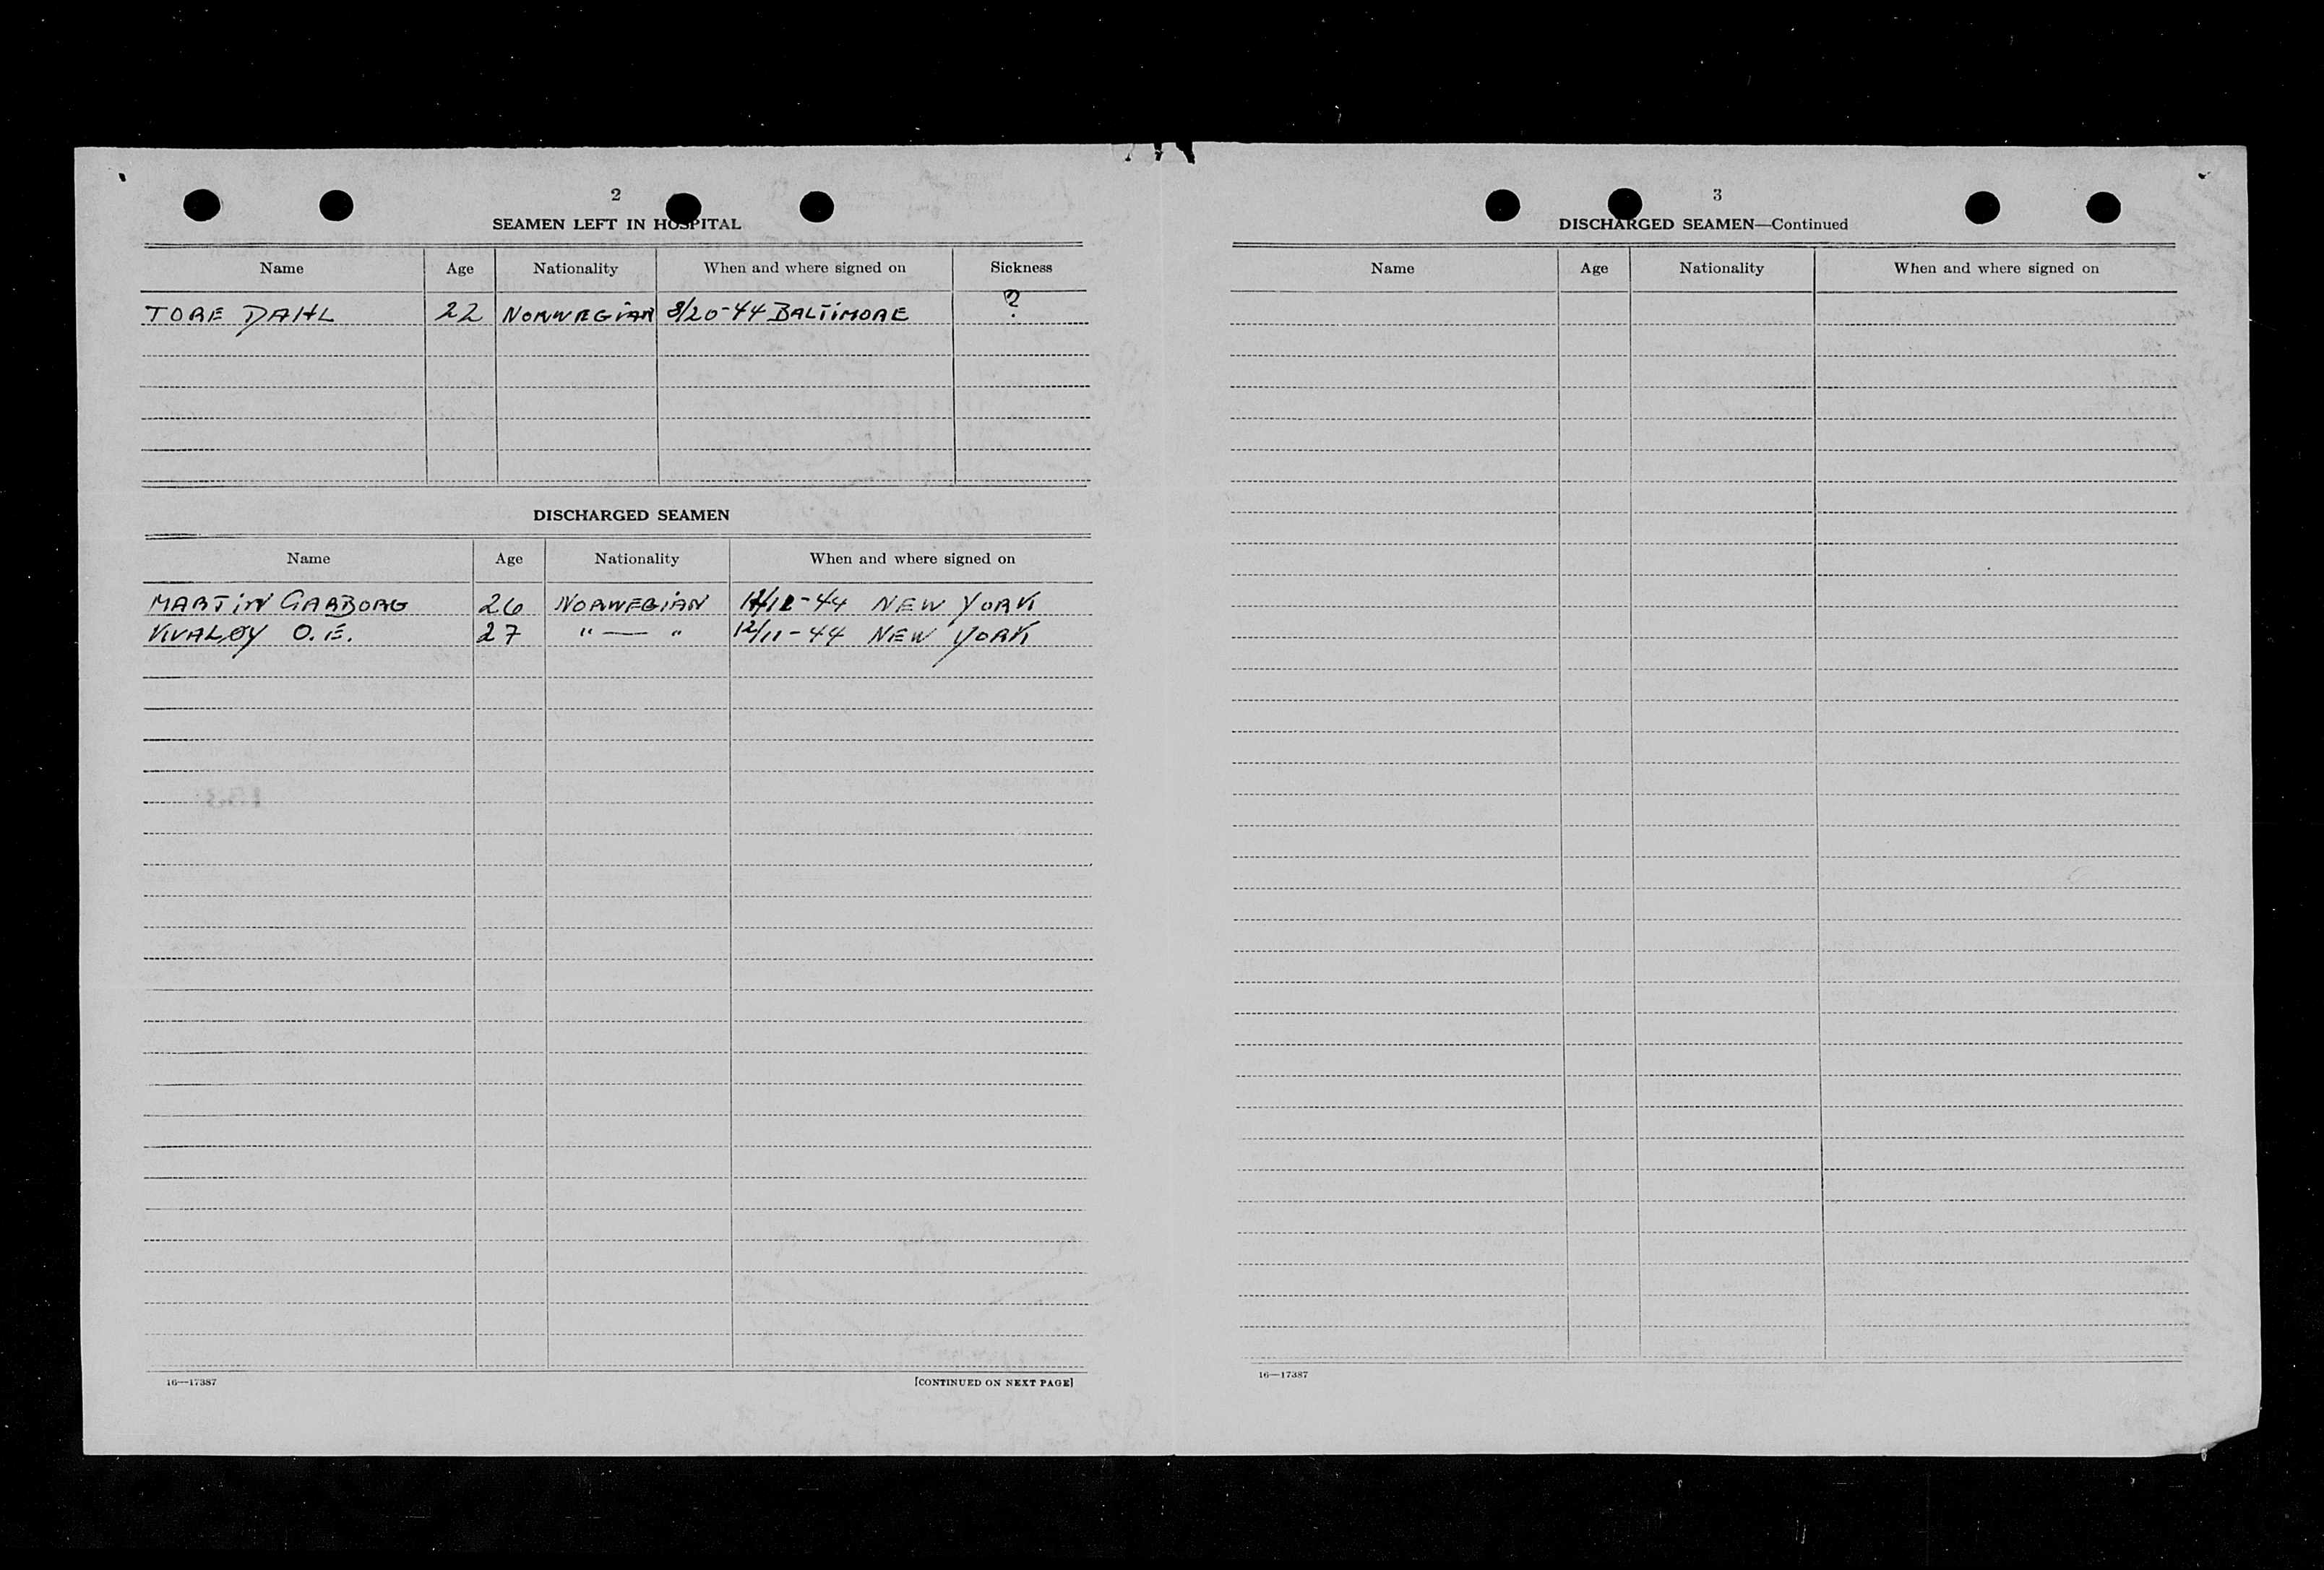 2
SEAMEN LEFT IN HOSPITAL
Name Age Nationality When and where signed on Sickness
TORE DAHL 22 NORWEGIAN 8/20-44 BALTIMORE ?
DISCHARGED SEAMEN
Name Age Nationality When and where signed on
MARTIN GARBORG 26 NORWEGIAN -44 NEW YORK
KVALØY O. E. 27 "—" 12/11-44 NEW YORK
16—17387 [CONTINUED ON NEXT PAGE]
3
DISCHARGED SEAMEN—Continued
Name Age Nationality When and where signed on
16—17387